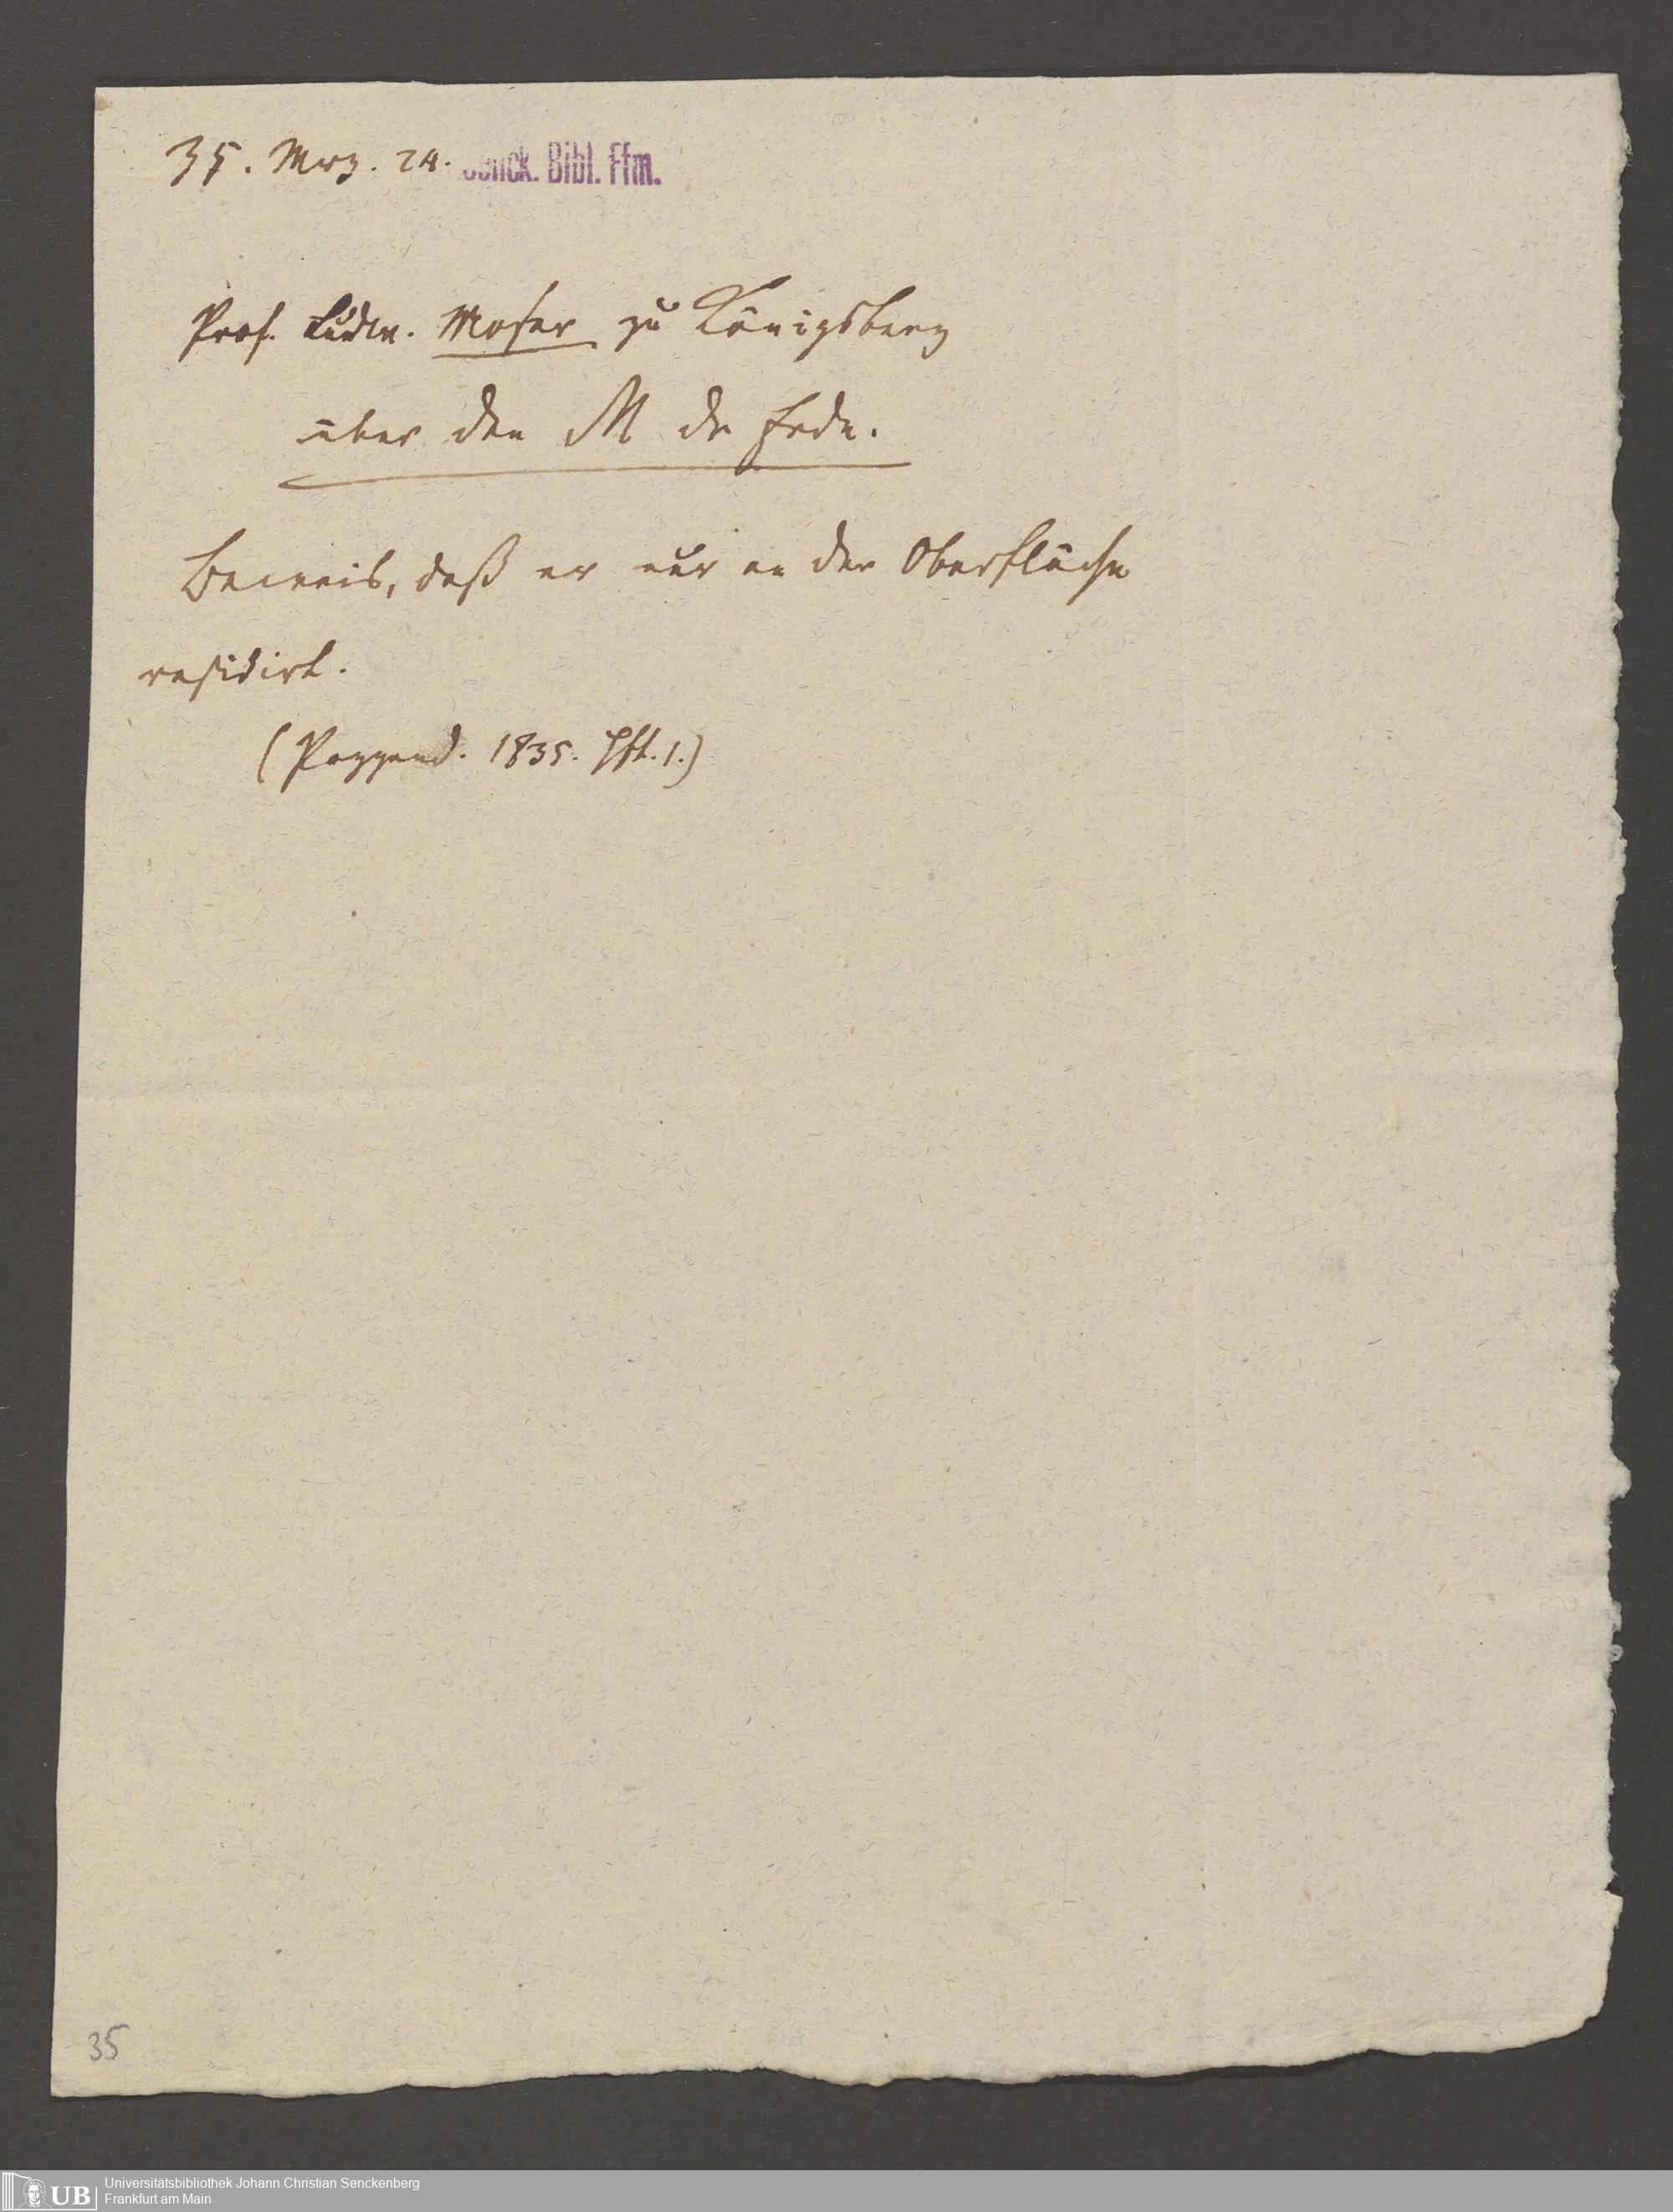 35. Mrz. 24.
Senck. Bibl. Ffm.
Prof. Ludw. Moser zu Königsberg
über den M der Erde.
Beweis, daß er nur an der Oberfläche
residirt.
(Poggend. 1835. Hft. 1.)
35
UB
Universitätsbibliothek Johann Christian Senckenberg
Frankfurt am Main